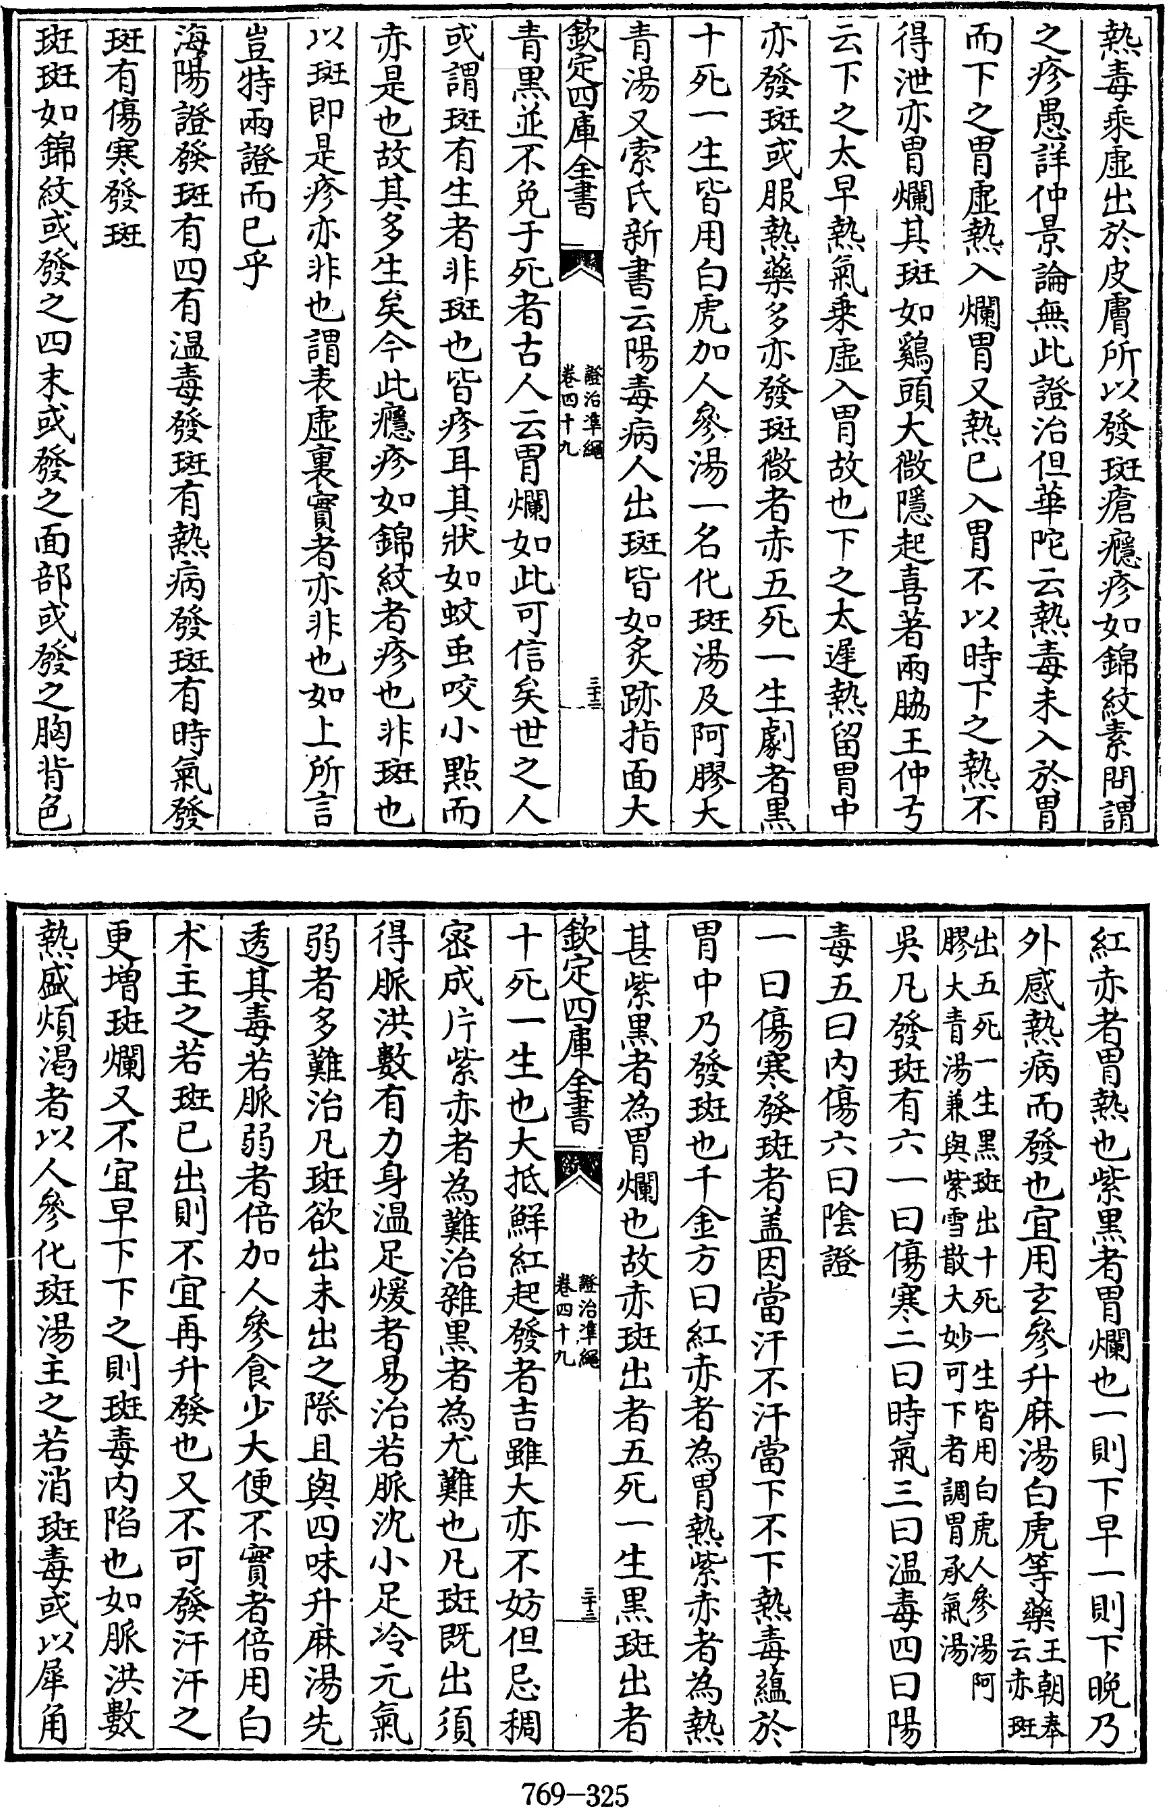 熱毒乘虛出於皮膚所以發斑瘡癮疹如錦紋素問謂
之疹愚詳仲景論無此證治但華陀云熱毒未入於胃
而下之胃虛熱入爛胃又熱已入胃不以時下之熱不
得泄亦胃爛其斑如鷄頭大微隱起喜著兩脇王仲弓
云下之太早熱氣乗虛入胃故也下之太遲熱留胃中
亦發斑或服熱藥多亦發斑微者赤五死一生劇者黒
十死一生皆用白虎加人參湯一名化斑湯及阿膠大
青湯又索氏新書云陽毒病人出斑皆如炙跡指面大
欽定四庫全書
證治準繩
卷四十九
三十二
青黒並不免于死者古人云胃爛如此可信矣世之人
或謂斑有生者非斑也皆疹耳其狀如蚊虫咬小點而
赤是也故其多生矣今此癮疹如錦紋者疹也非斑也
以斑即是疹亦非也謂表虛裏實者亦非也如上所言
豈特兩證而已乎
海陽證發斑有四有温毒發斑有熱病發斑有時氣發
斑有傷寒發斑
斑斑如錦紋或發之四末或發之面部或發之胸背色
紅赤者胃熱也紫黒者胃爛也一則下早一則下晚乃
外感熱病而發也宜用玄參升麻湯白虎等藥王朝奉
云赤斑
出五死一生黒斑出十死一生皆用白虎人參湯阿
膠大青湯兼與紫雪散大妙可下者調胃承氣湯
吳凡發斑有六一曰傷寒二曰時氣三曰温毒四曰陽
毒五曰内傷六曰陰證
一曰傷寒發斑者盖因當汗不汗當下不下熱毒蘊於
胃中乃發斑也千金方曰紅赤者為胃熱紫赤者為熱
甚紫黒者為胃爛也故赤斑出者五死一生黒斑出者
欽定四庫全書
證治準繩
卷四十九
三十三
十死一生也大抵鮮紅起發者吉雖大亦不妨但忌稠
宻成片紫赤者為難治雜黒者為尤難也凡斑既出須
得脈洪數有力身温足煖者易治若脈沈小足冷元氣
弱者多難治凡斑欲出未出之際且與四味升麻湯先
透其毒若脈弱者倍加人參食少大便不實者倍用白
术主之若斑已出則不宜再升發也又不可發汗汗之
更增斑爛又不宜早下下之則斑毒内陷也如脈洪數
熱盛煩渴者以人參化斑湯主之若消斑毒或以犀角
769-325